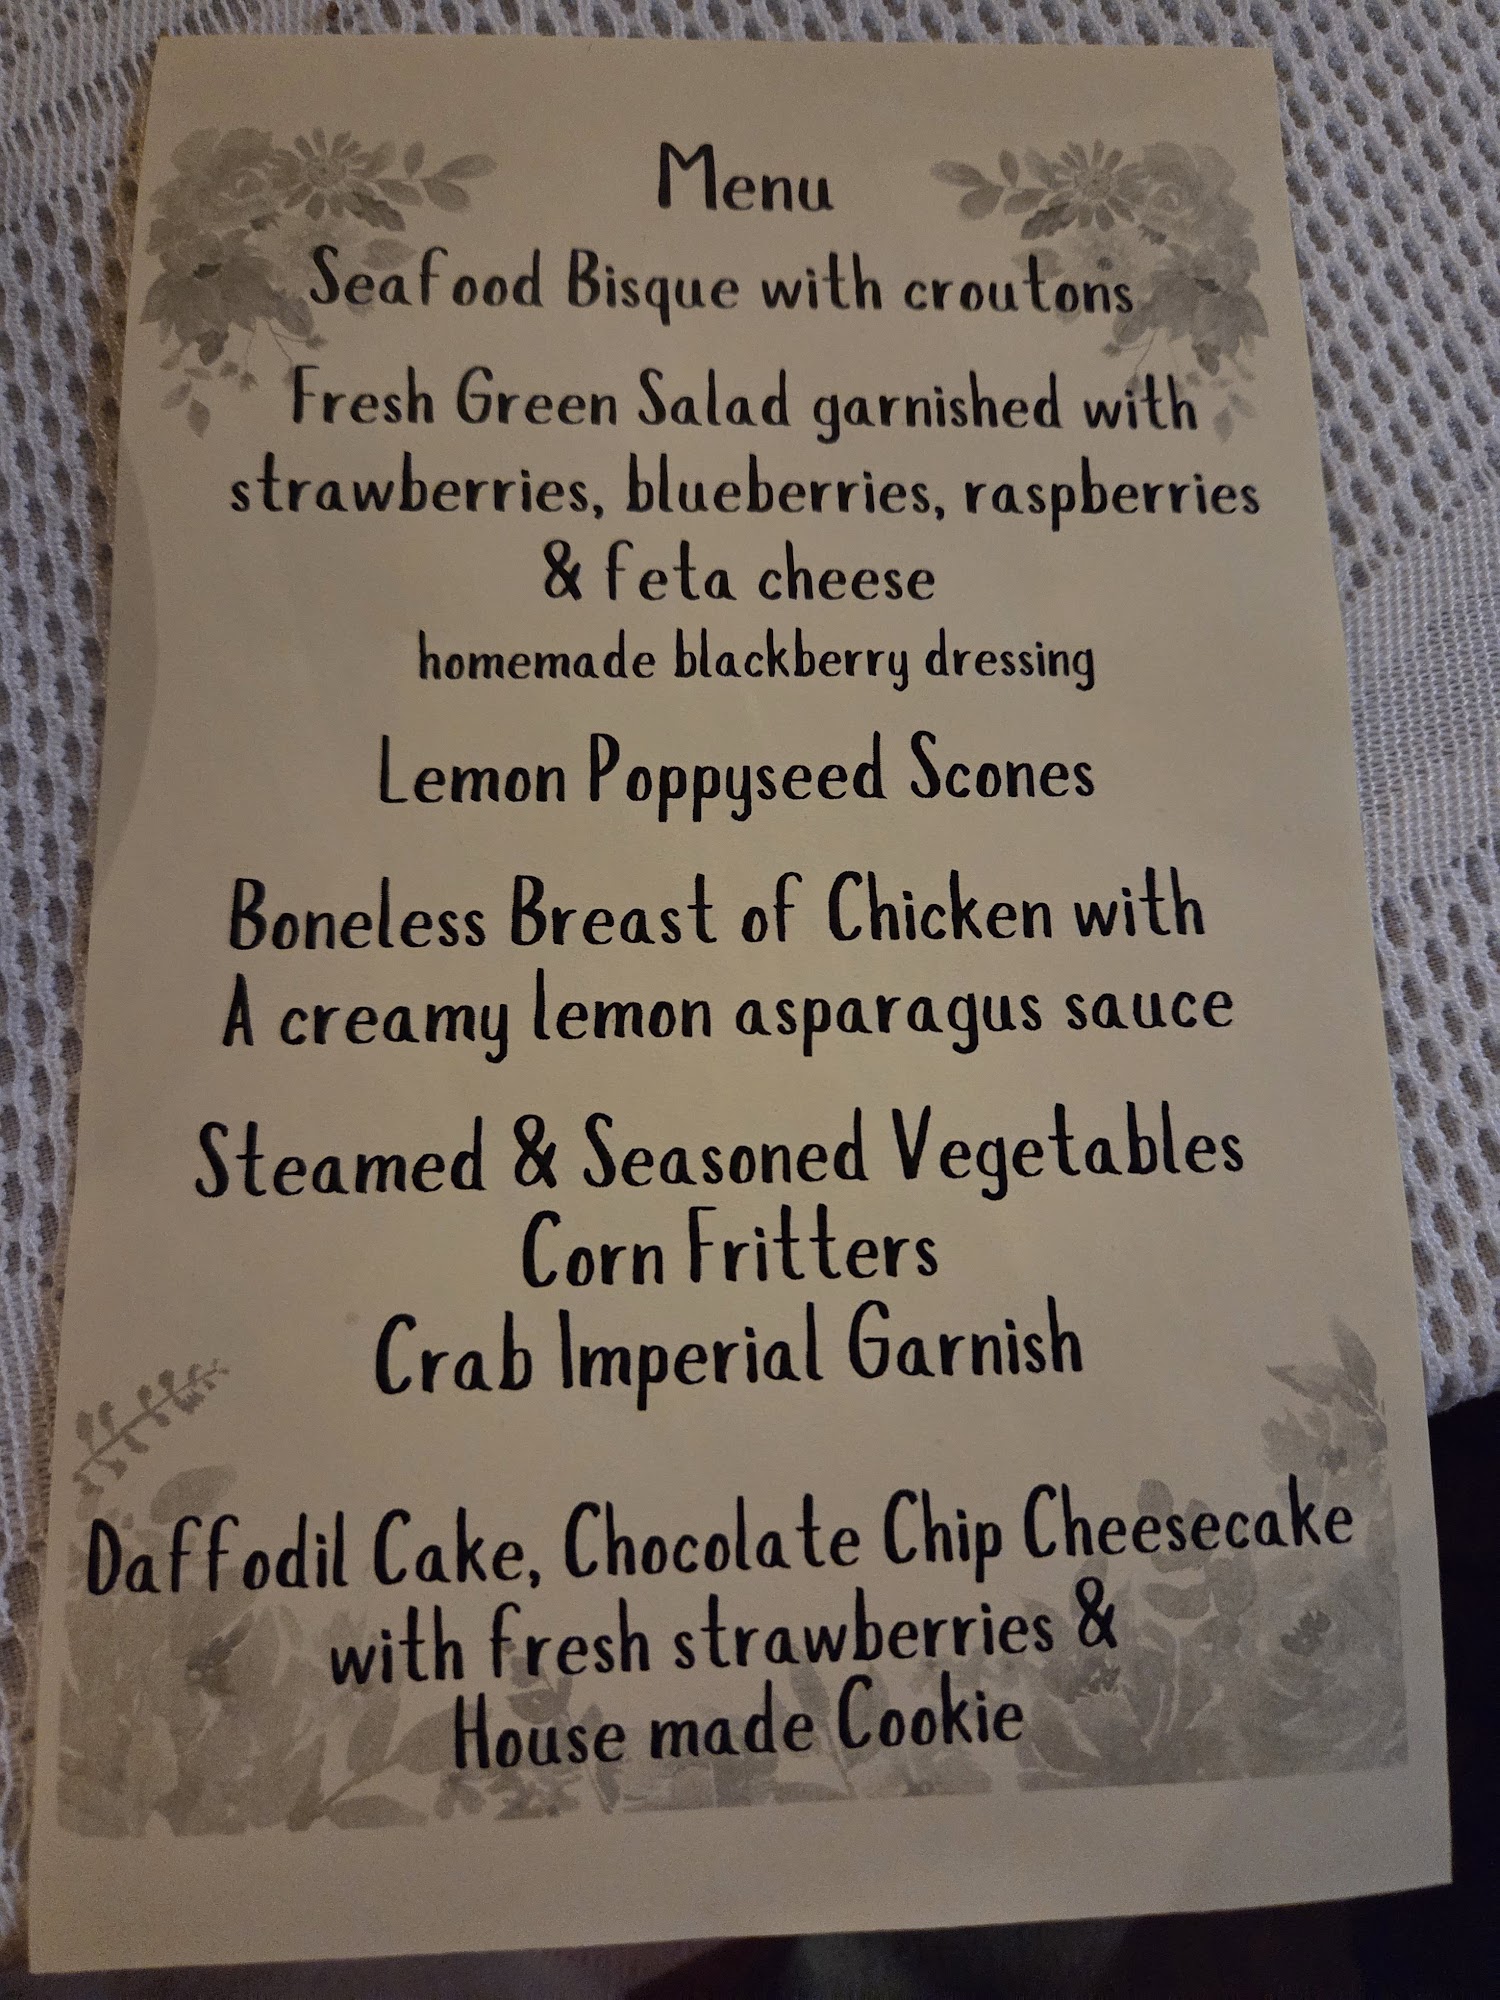 Menu
Seafood Bisque with croutons
Fresh Green Salad garnished with
strawberries, blueberries, raspberries
& feta cheese
homemade blackberry dressing
Lemon Poppyseed Scones
Boneless Breast of Chicken with
A creamy lemon asparagus sauce
Steamed & Seasoned Vegetables
Corn Fritters
Crab Imperial Garnish
Daffodil Cake, Chocolate Chip Cheesecake
with fresh strawberries &
House made Cookie